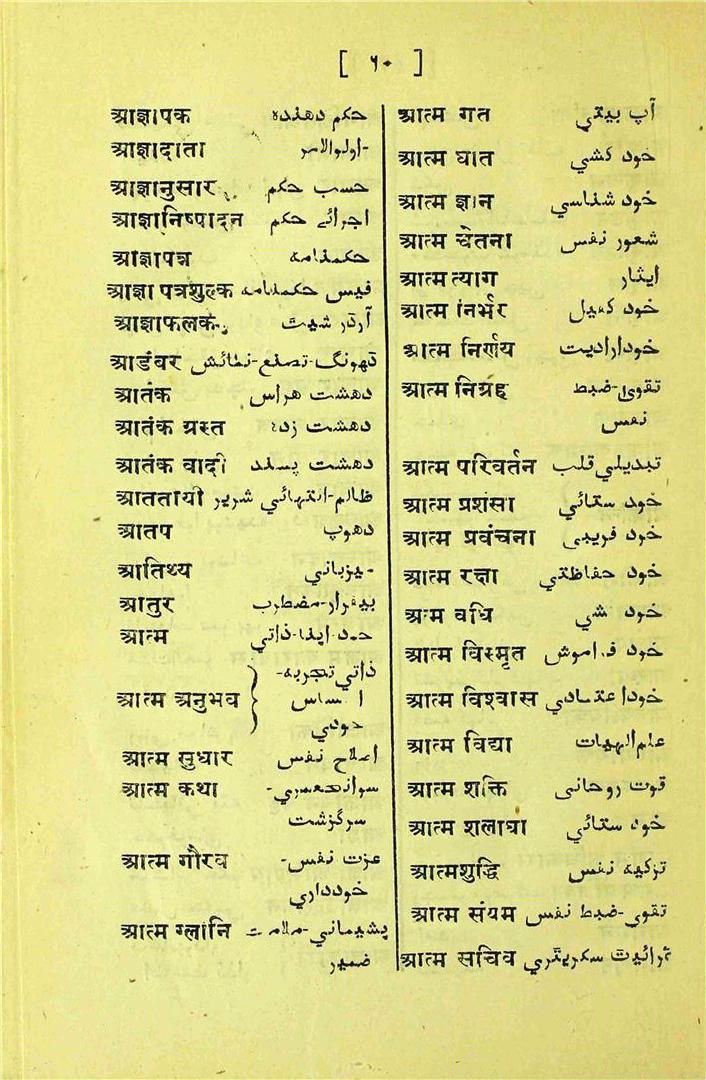 [ ۶۰ ]
आज्ञापक حکم دهنده
आज्ञादाता اولوالامر-
आज्ञानुसार حسب حکم
आज्ञानिष्पादन اجرائے حکم
आज्ञापत्र حکمنامه
आज्ञा पत्रशुल्क فیس حکمنامه
आज्ञाफलक آرڈر شیٹ
आडंबर ڈھونگ-تصنع-نمائش
आतंक دهشت هراس
आतंक ग्रस्त دهشت زده
आतंक वादी دهشت پسند
आततायी ظالم-انتہائي شریر
आतप دهوپ
आतिथ्य میزباني-
आतुर بیقرار-مضطرب
आत्म خود-اپنا-ذاتي
ذاتي تجربه-
आत्म अनुभव احساس
خودي
आत्म सुधार اصلاح نفس
आत्म कथा سوانحعمري-
سرگزشت
आत्म गौरव عزت نفس-
خودداري
आत्म ग्लानि پشیماني-ملامت
ضمیر
आत्म गत آپ بیتي
आत्म घात خود کشي
आत्म ज्ञान خود شناسي
आत्म चेतना شعور نفس
आत्म त्याग ایثار
आत्म निर्भर خود کفیل
आत्म निर्णय خودارادیت
आत्म निग्रह تقوی-ضبط
نفس
आत्म परिवर्तन تبدیلي قلب
आत्म प्रशंसा خود ستائي
आत्म प्रवंचना خود فریبی
आत्म रक्षा خود حفاظتي
वधि خود
आत्म विस्मृत خود فراموش
आत्म विश्वास خوداعتمادي
आत्म विद्या علم الہیات
आत्म शक्ति قوت روحانی
आत्म शलाघा خود ستائي
आत्मशुद्धि تزکیه نفس
आत्म संयम تقوي-ضبط نفس
आत्म सचिव پرائیوٹ سکریٹري